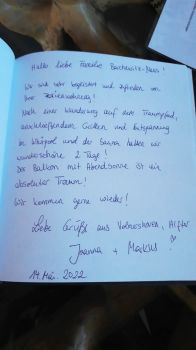 Hallo liebe Familie Bachwitz-Ness!
Wir sind sehr begeistert und zufrieden von
Ihrer Ferienwohnung!
Nach einer Wanderung auf dem Traumpfad,
anschließendem Grillen und Entspannung
im Whirlpool und der Sauna hatten wir
wunderschöne 2 Tage!
Der Balkon mit Abendsonne ist ein
absoluter Traum!
Wir kommen gerne wieder!
Liebe Grüße aus Volmershoven, Alfter
Joanna + Markus!
14. Mai. 2022